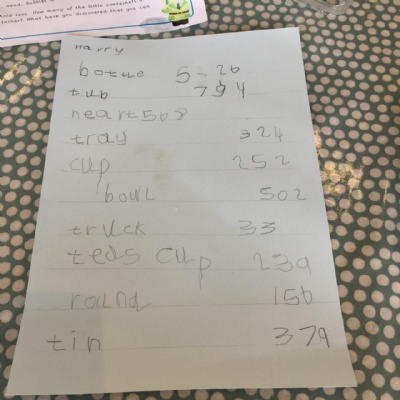 How many of the little containers
What have you discovered that you can
harry
botue 5-26
tub 794
heart 508
tray 324
cup 252
bowl 502
truck 33
teds cup 239
round 156
tin 379